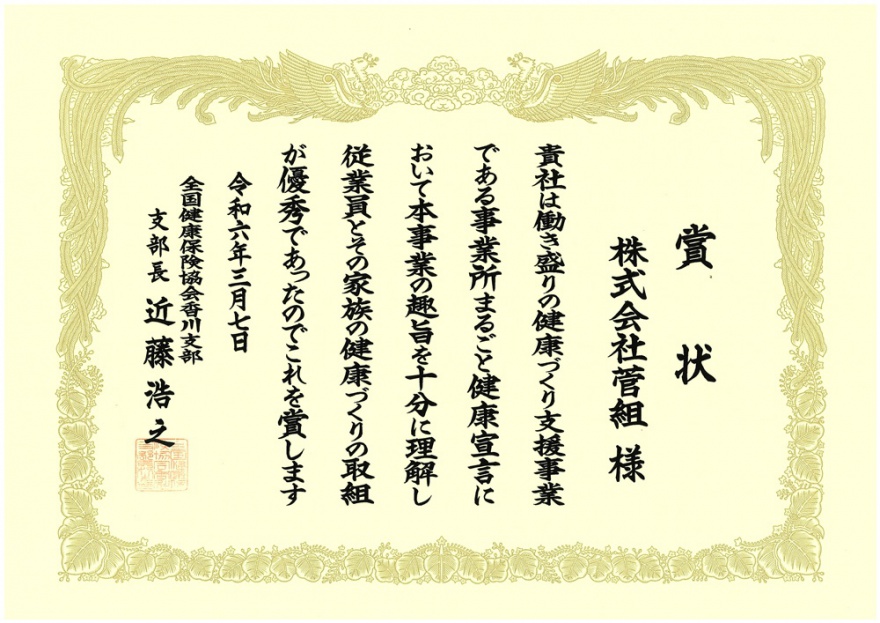 賞状
株式会社菅組 様
貴社は働き盛りの健康づくり支援事業
である事業所まるごと健康宣言に
おいて本事業の趣旨を十分に理解し
従業員とその家族の健康づくりの取組
が優秀であったのでこれを賞します
令和六年三月七日
全国健康保険協会香川支部
支部長 近藤浩之